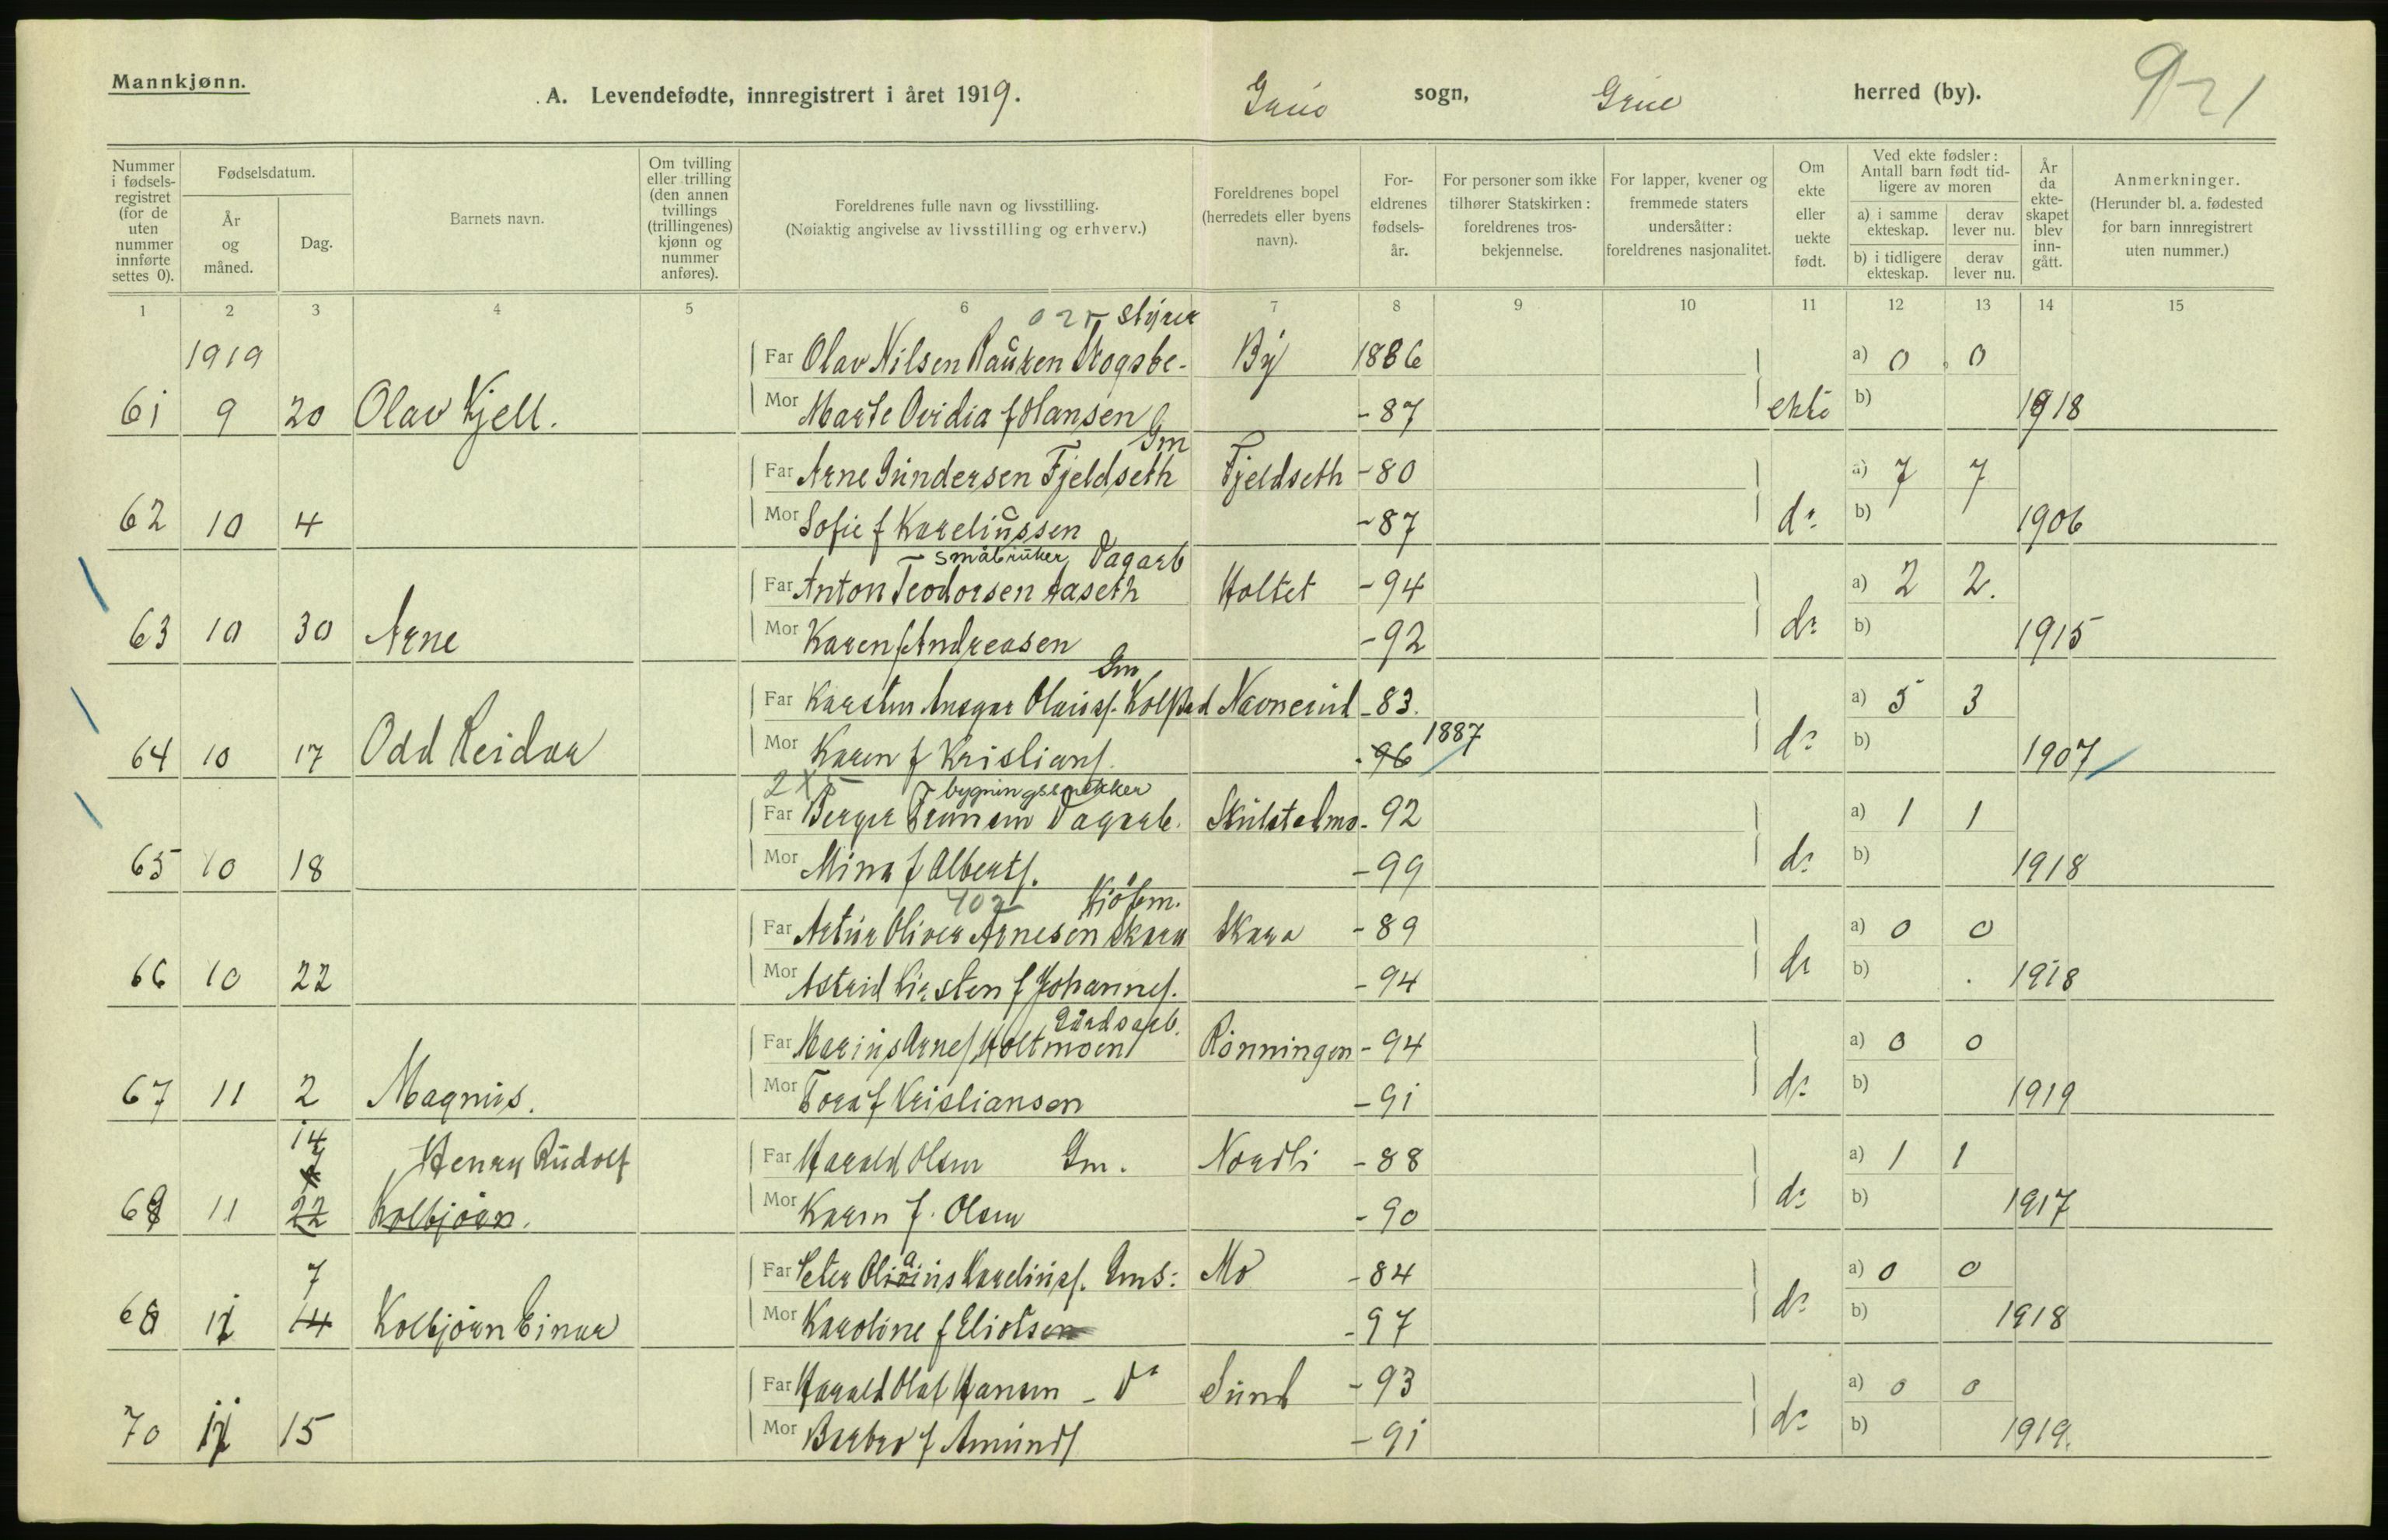 Mannkjønn.
A. Levendefødte, innregistrert i året 1919. Grue sogn, Grue herred (by).
Nummer i fødsels-registret (for de uten nummer innførte settes 0).
Fødselsdatum.
År og måned.
Dag.
Barnets navn.
Om tvilling eller trilling (den annen tvillings (trillingenes) kjønn og nummer anføres).
Foreldrenes fulle navn og livsstilling.
(Nøiaktig angivelse av livsstilling og erhverv.)
Foreldrenes bopel (herredets eller byens navn).
For-eldrenes fødsels-år.
For personer som ikke tilhører Statskirken: foreldrenes tros-bekjennelse.
For lapper, kvener og fremmede staters undersåtter: foreldrenes nasjonalitet.
Om ekte eller uekte født.
Ved ekte fødsler: Antall barn født tid-ligere av moren
a) i samme ekteskap.
derav lever nu.
b) i tidligere ekteskap.
derav lever nu.
År da ekte-skapet blev inn-gått.
Anmerkninger.
(Herunder bl. a. fødested for barn innregistrert uten nummer.)
1 2 3 4 5 6 7 8 9 10 11 12 13 14 15
styrer
1919 Far Olav Nilsen Skogsbe- By 1886 a) 0 0
61 9 20 Olav Kjell. Mor Marte Ovidia f Hansen - 87 ekte b) 1918
Gm
Far Arne Gundersen Fjeldseth Fjeldseth - 80 a) 7 7
62 10 4 Mor Sofie f Kareliussen - 87 do b) 1906
småbruker Dagarb
Far Anton Teodorsen Aaseth Holtet - 94 a) 2 2.
63 10 30 Arne Mor Karen f Andreasen - 92 do b) 1915
Gm
Far Karsten Ansgar Olauss. Kolstad - 83. a) 5 3
1887
64 10 17 Odd Reidar Mor Karen f Kristians. - 96 do b) 1907
bygningssnekker
Far Berger Dagarb. - 92 a) 1 1
65 10 18 Mor Mina f Alberts. - 99 do b) 1918
402 Kjøbm.
Far Artur Oliver Arnesen Skara Skara - 89 a) 0 0
66 10 22 Mor Astrid Kirsten f Johannes. - 94 do b) 1918
Gårdsarb.
Far Marius Arnes. Holtmoen Rønningen - 94 a) 0 0
67 11 2 Magnus. Mor Tora f Kristiansen - 91 do b) 1919
14
Henry Rudolf Far Harald Olsen Gm. Nordli - 88 a) 1 1
69 11 22 Kolbjørn. Mor Karen f. Olsen - 90 do b) 1917
7
Far Peter Karelius. Gms: Mo - 84 a) 0 0
68 11 14 Kolbjørn Einar Mor Karoline f Eliotsen - 97 do b) 1918
Far Harald Olaf Hansen - do Sund - 93 a) 0 0
70 11 15 Mor Barbro f Amunds - 91 do b) 1919.